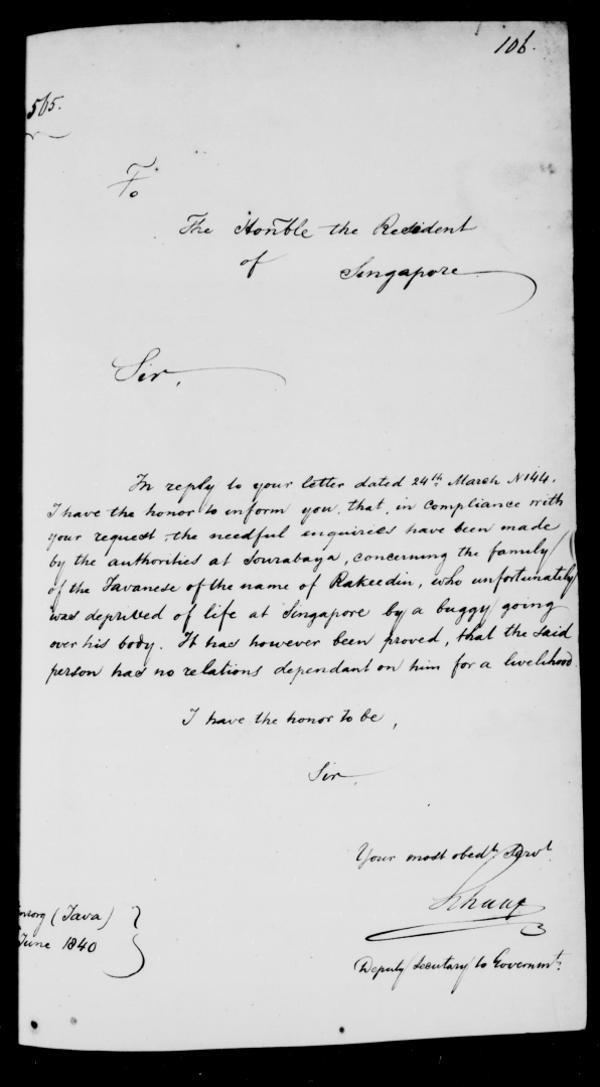 106.
565.
To
The Honble the Resident
of Singapore
Sir,
In reply to your letter dated 24th March N 144.
I have the honor to inform you, that, in compliance with
your request, the needful enquiries have been made
by the authorities at Sourabaya, concerning the family
of the Javanese of the name of Rakeedin, who unfortunately
was deprived of life at Singapore by a buggy going
over his body. It has however been proved, that the said
person has no relations dependant on him for a livelihood.
I have the honor to be,
Sir,
Your most obedt Servt
(Java)
June 1840
Deputy Secretary to Governmt.